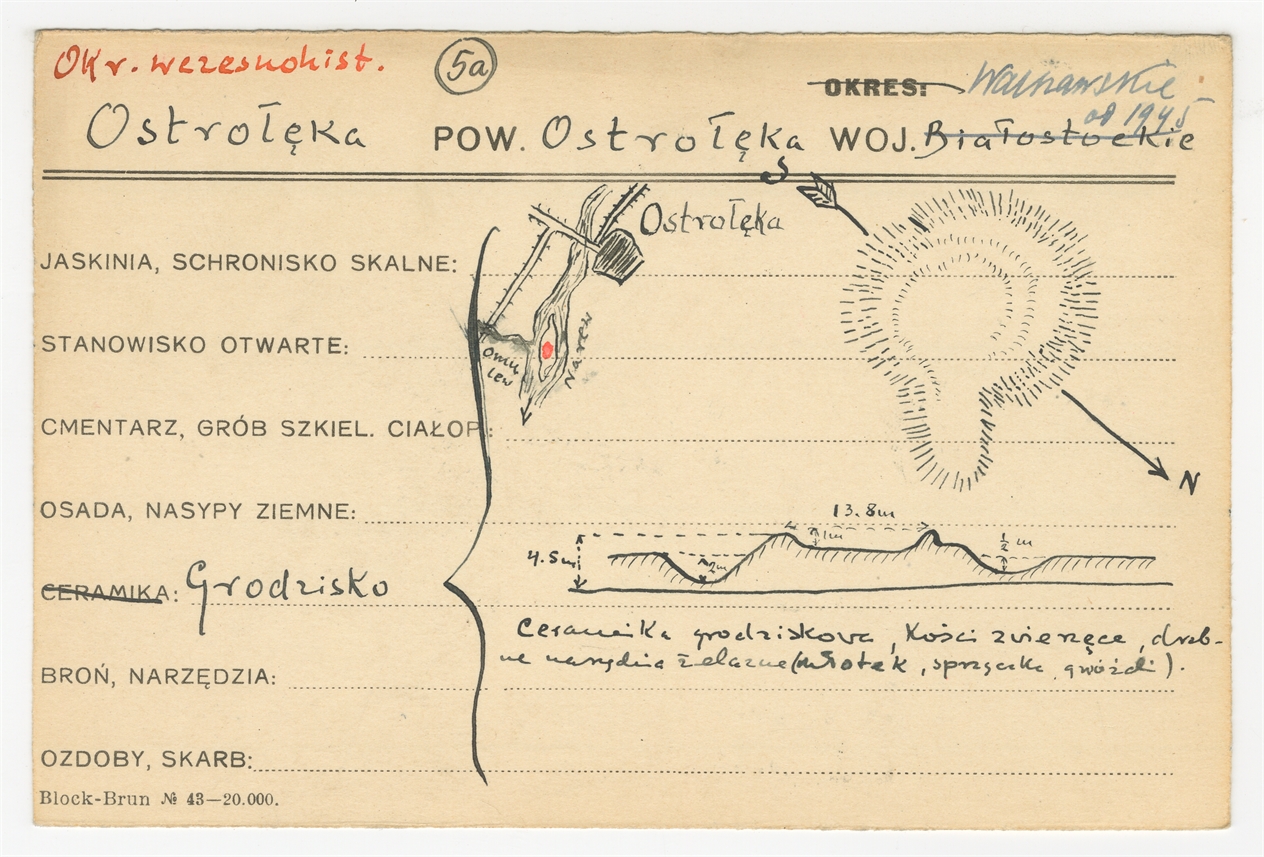 Okr. wczesnohist.
5a
OKRES: Warszawskie
od 1945
Ostrołęka POW. Ostrołęka WOJ. Białostockie
S
Ostrołęka
JASKINIA, SCHRONISKO SKALNE:
STANOWISKO OTWARTE:
Omu
lew
Narew
CMENTARZ, GRÓB SZKIEL. CIAŁOP.:
N
OSADA, NASYPY ZIEMNE:
13.8m
1m
½ m
4.5m
2m
CERAMIKA: Grodzisko
Ceramika grodziskowa, Kości zwierzęce, drob-
ne narzędzia żelazne (młotek, sprzączka, gwóździ).
BROŃ, NARZĘDZIA:
OZDOBY, SKARB:
Block-Brun № 43—20.000.